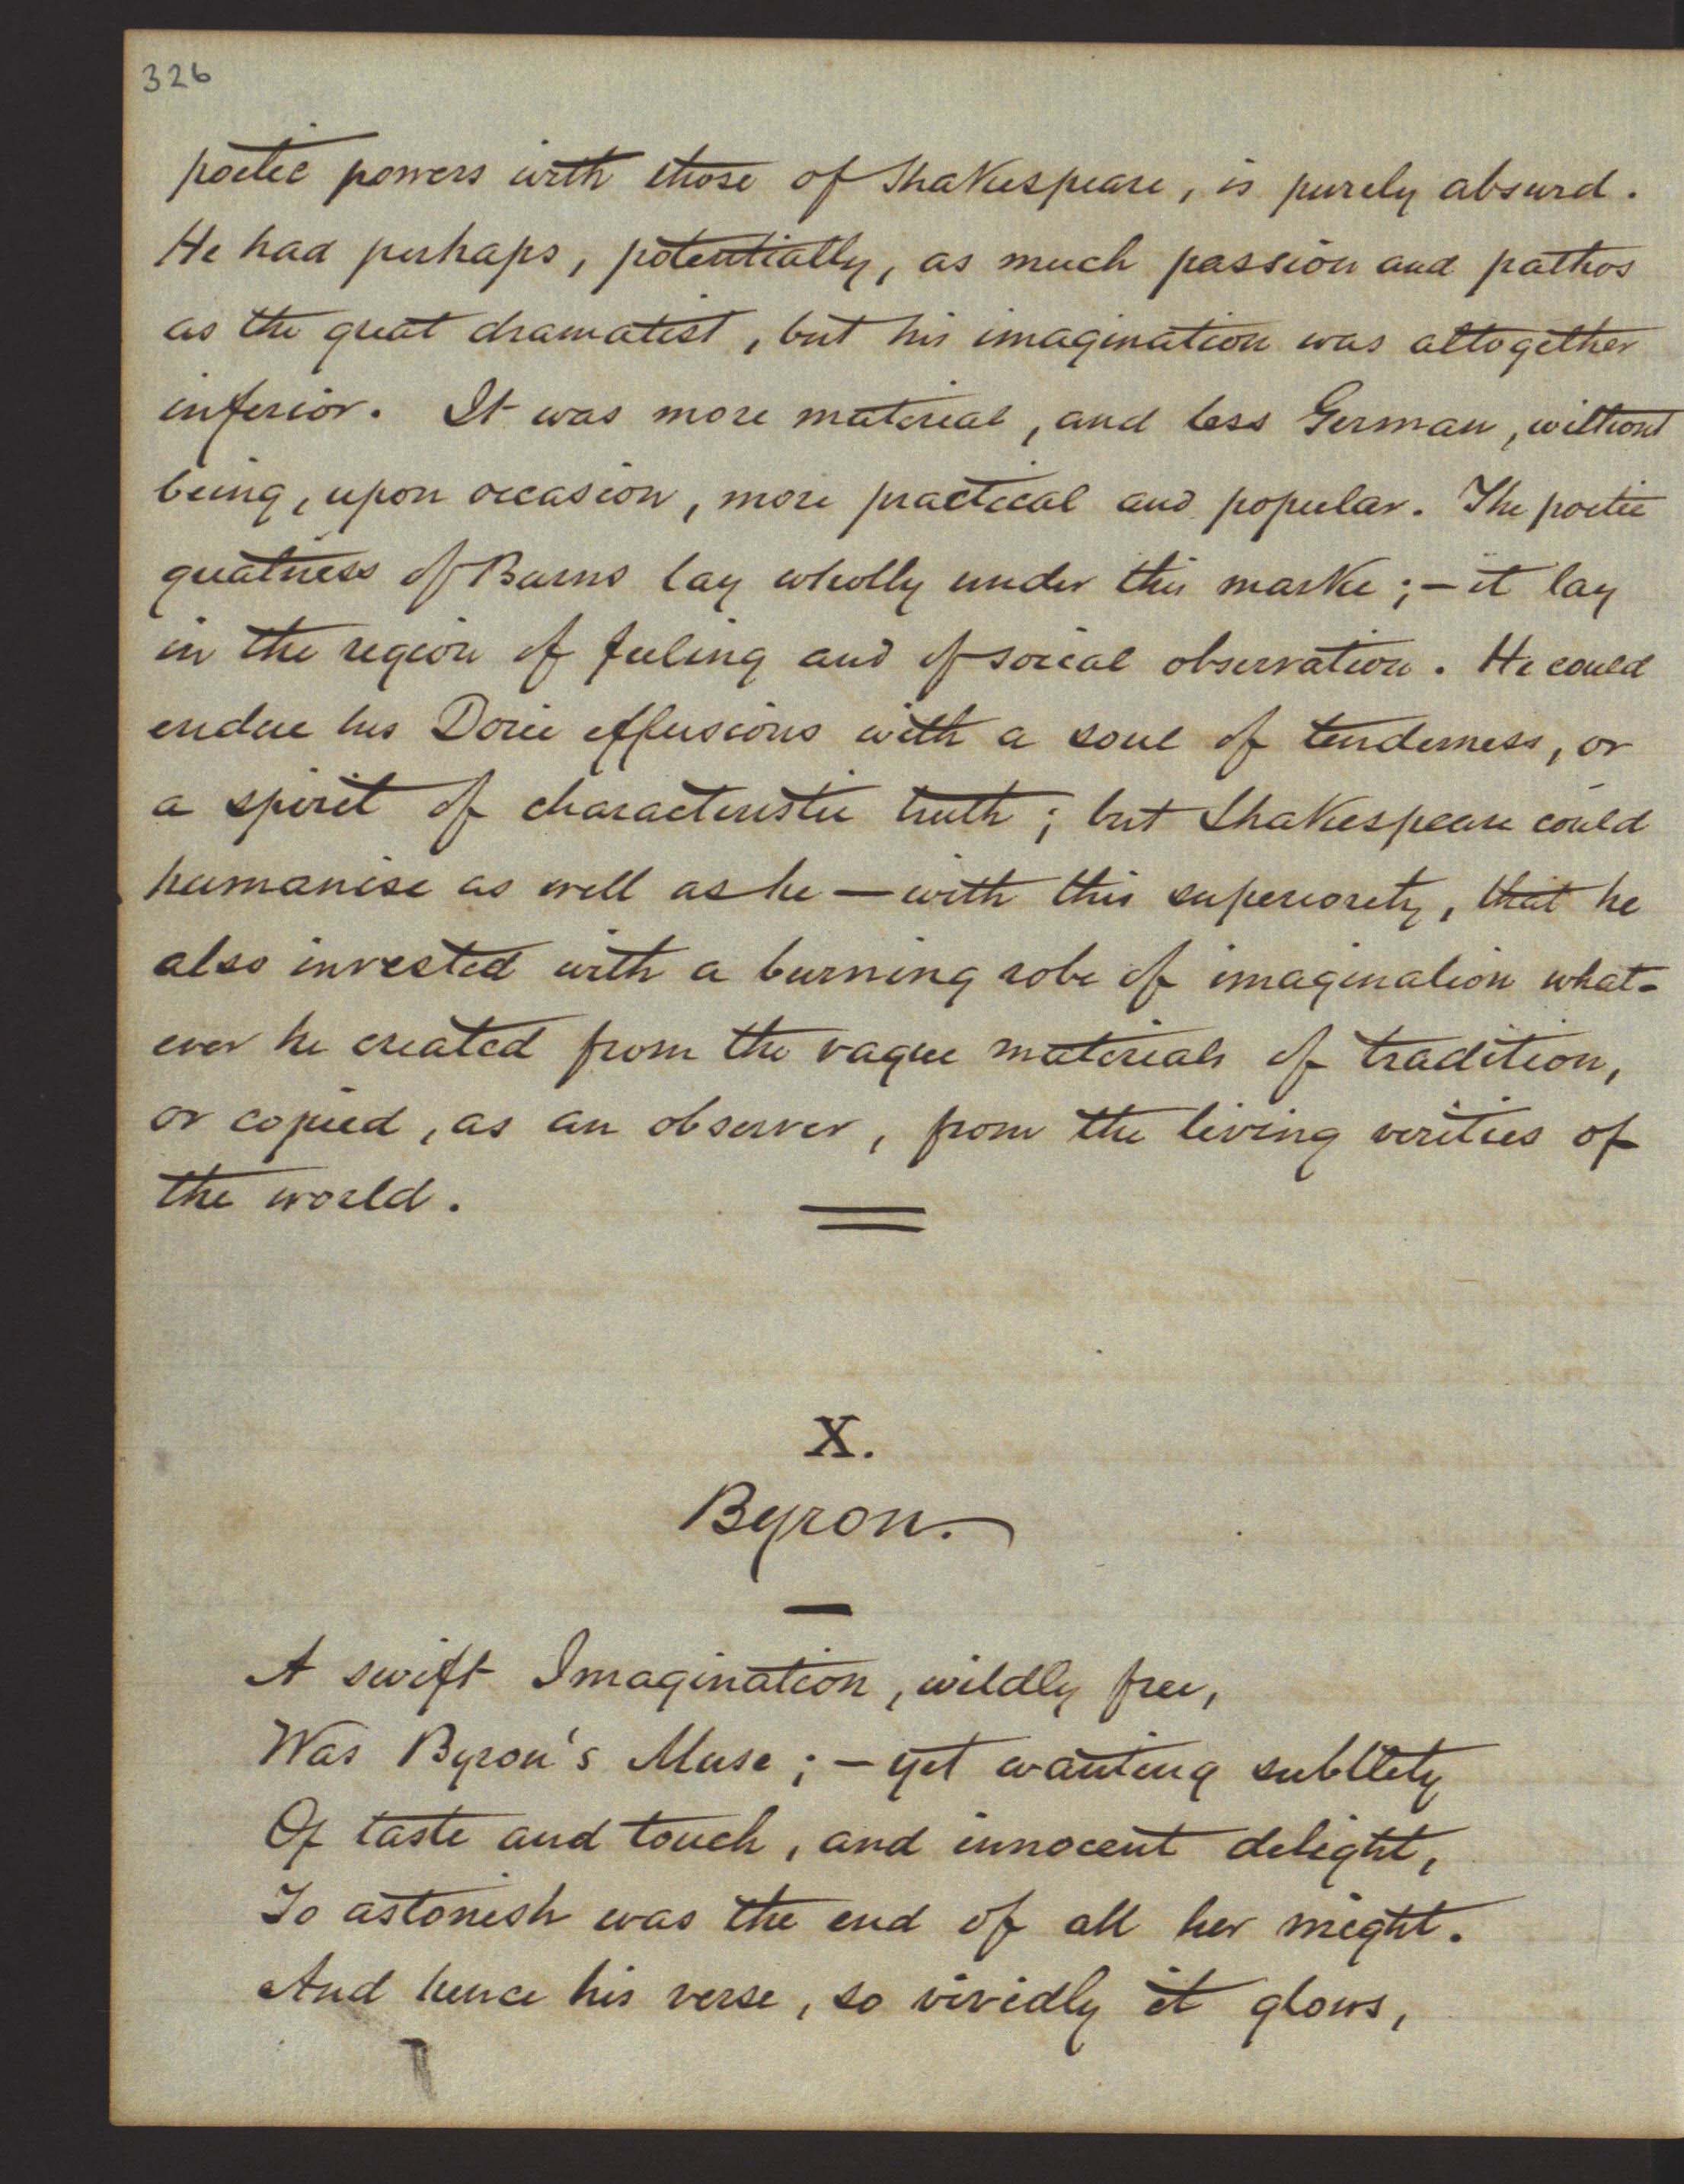 326
poetic powers with those of Shakespeare, is purely absurd.
He had perhaps, potentially, as much passion and pathos
as the great dramatist, but his imagination was altogether
inferior. It was more material, and less German, without
being, upon occasion, more practical and popular. The poetic
greatness of Burns lay wholly under this marke;—it lay
in the region of feeling and of social observation. He could
endue his Doric effusions with a soul of tenderness, or
a spirit of characteristic truth; but Shakespeare could
humanise as well as he—with this superiority, that he
also invested with a burning robe of imagination what-
ever he created from the vague materials of tradition,
or copied, as an observer, from the living verities of
the world.
X.
Byron.
A swift Imagination, wildly free,
Was Byron's Muse;—yet wanting subtlety
Of taste and touch, and innocent delight,
To astonish was the end of all her might.
And hence his verse, so vividly it glows,